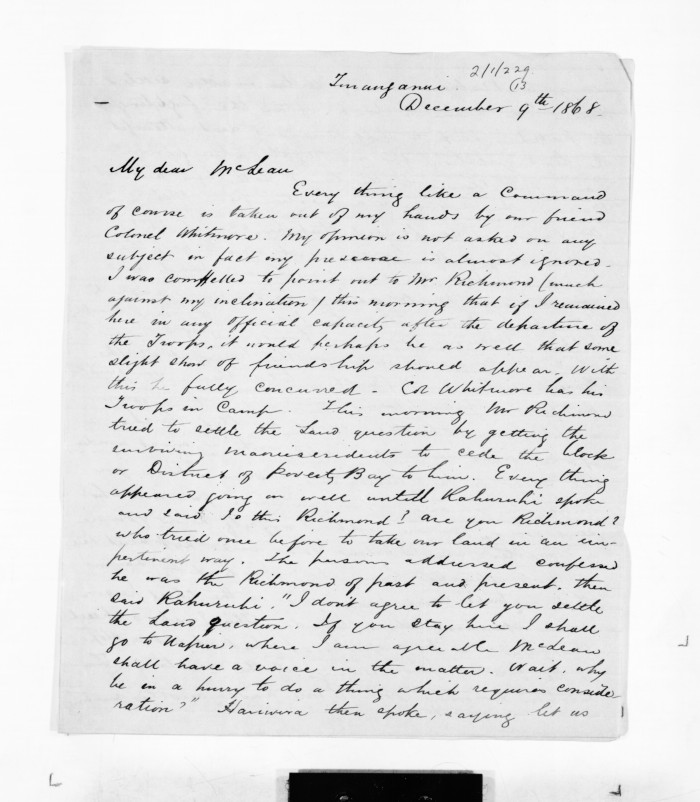 2/1/229
13
Turanganui
December 9th 1868.
My dear McLean
Every thing like a Command
of course is taken out of my hands by our friend
Colonel Whitmore. My opinion is not asked on any
subject in fact my presence is almost ignored.
I was compelled to point out to Mr Richmond (much
against my inclination) this morning that if I remained
here in any official capacity after the departure of
the Troops, it would perhaps be as well that some
slight show of friendship should appear. With
this he fully concurred - Col Whitmore has his
Troops in Camp. This morning Mr Richmond
tried to settle the Land question by getting the
surviving maori residents to cede the block
or District of Poverty Bay to him. Every thing
appeared going on well untill Kahuruhi spoke
and said Is this Richmond? are you Richmond?
who tried once before to take our land in an im-
pertinent way. The persons addressed confessed
he was the Richmond of past and present. then
said Kahuruhi. "I don't agree to let you settle
the Land question. If you stay here I shall
go to Napier, where I am agreeable McLean
shall have a voice in the matter. Wait, why
be in a hurry to do a thing which requires conside
ration?" Hariwira then spoke, saying let us